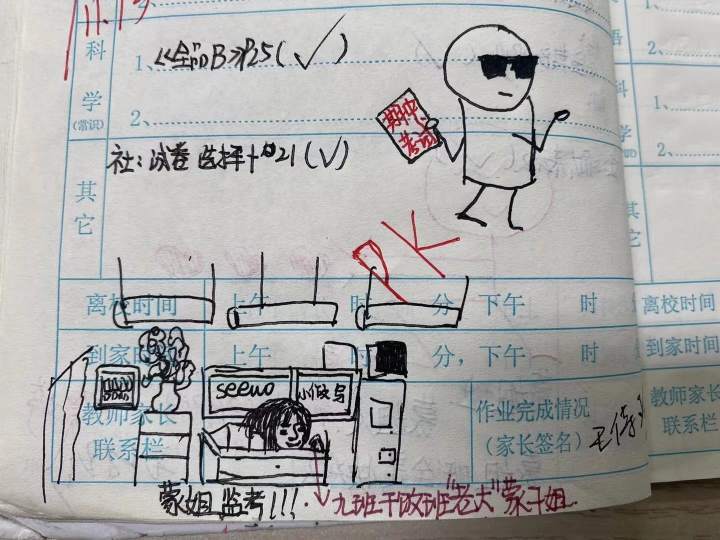 11.13
科学
(常识)
1、《全品B》P25(✓)
2、
期中
考试
其它
社:试卷 选择+#21(✓)
PK
离校时间 上午 时 分,下午 时
到家时间 上午 时 分,下午 时
seewo
教师家长
联系栏
作业完成情况
(家长签名)
蒙姐监考!!!
2、
1、
2、
离校时间
到家时间
教师家长
联系栏